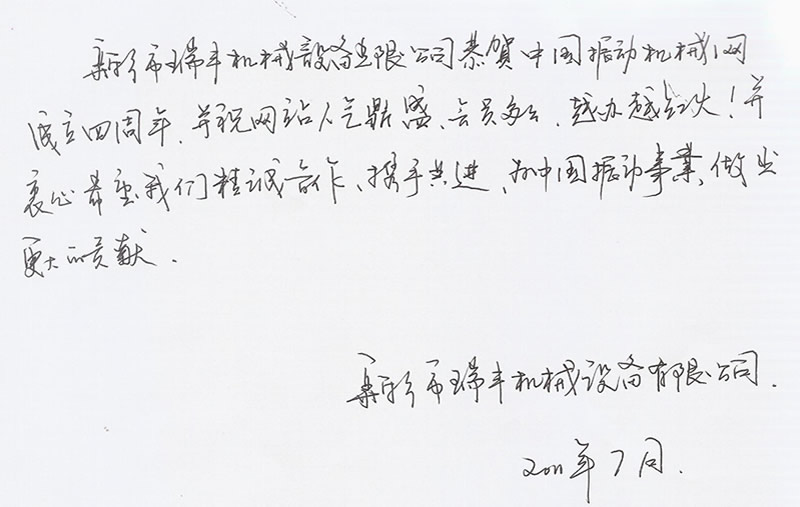 新乡市瑞丰机械設备有限公司恭賀中国振动机械网
成立四周年、并祝网站人气鼎盛、会员多多、越办越红火！并
衷心希望我们精诚合作、携手共进、为中国振动事業、做出
更大的贡献.
新乡市瑞丰机械设备有限公司.
2011年7月.